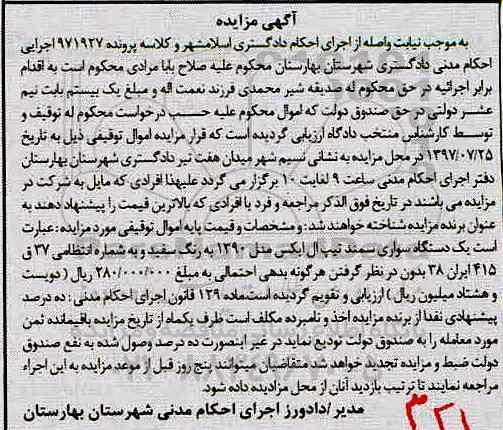 آگهی مزایده
به موجب نیابت واصله از اجرای احکام دادگستری اسلامشهر و کلاسه پرونده ۹۷۱۹۲۷ اجرایی
احکام مدنی دادگستری شهرستان بهارستان محکوم علیه صلاح بابا مرادی محکوم است به اقدام
برابر اجرائیه در حق محکوم له صدیقه شیر محمدی فرزند نعمت اله و مبلغ یک بیستم بابت نیم
عشر دولتی در حق صندوق دولت که اموال محکوم علیه حسب درخواست محکوم له توقیف و
توسط کارشناس منتخب دادگاه ارزیابی گردیده است که قرار مزایده اموال توقیفی ذیل به تاریخ
۱۳۹۷/۰۷/۲۵ در محل مزایده به نشانی نسیم شهر میدان هفت تیر دادگستری شهرستان بهارستان
دفتر اجرای احکام مدنی ساعت ۹ لغایت ۱۰ برگزار می گردد علیهذا افرادی که مایل به شرکت در
مزایده می باشند در تاریخ فوق الذکر مراجعه و فرد یا افرادی که بالاترین قیمت را پیشنهاد دهند به
عنوان برنده مزایده شناخته خواهند شد: و مشخصات و قیمت پایه اموال توقیفی مورد مزایده: عبارت
است یک دستگاه سواری سمند تیپ ال ایکس مدل ۱۳۹۰ به رنگ سفید و به شماره انتظامی ۳۷ ق
۴۱۵ ایران ۳۸ بدون در نظر گرفتن هرگونه بدهی احتمالی به مبلغ ۲۸۰/۰۰۰/۰۰۰ ریال ( دویست
و هشتاد میلیون ریال ) ارزیابی و تقویم گردیده است ماده ۱۲۹ قانون اجرای احکام مدنی : ده درصد
پیشنهادی نقدا از برنده مزایده اخذ و نامبرده مکلف است ظرف یکماه از تاریخ مزایده باقیمانده ثمن
مورد معامله را به صندوق دولت تودیع نماید در غیر اینصورت ده درصد وصول شده به نفع صندوق
دولت ضبط و مزایده تجدید خواهد شد متقاضیان میتوانند پنج روز قبل از موعد مزایده به این اجراء
مراجعه نمایند تا ترتیب بازدید آنان از محل مزادیده داده شود.
مدیر/دادورز اجرای احکام مدنی شهرستان بهارستان
۳۲۱